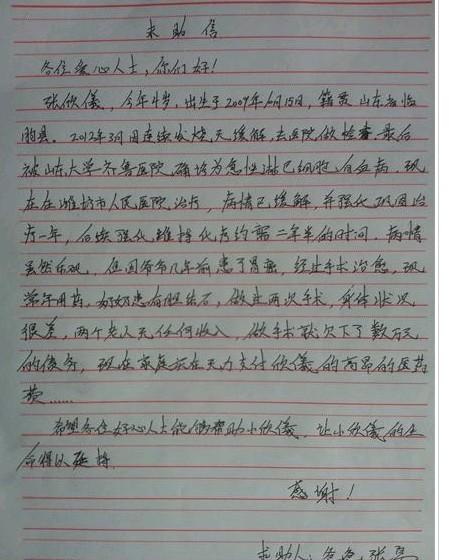 求助信
各位爱心人士，你们好！
张欣儀，今年4岁，出生于2009年6月15日，籍贯山东省临
朐县。2012年3月因连续发烧无缓解，去医院做检查，最后
被山东大学齐鲁医院确诊为急性淋巴细胞白血病，现
在在潍坊市人民医院治疗，病情已缓解，并强化巩固治
疗一年，后续强化维持化疗约需二年半的时间。病情
虽然乐观，但因爷爷几年前患了胃癌，经过手术治愈，现
常年用药，奶奶患有胆结石，做过两次手术，身体状况
很差，两个老人无任何收入，做手术就欠下了数万元
的债务，现在家庭实在无力支付欣儀的高昂的医药
费……
希望各位好心人士能够帮助小欣儀，让小欣儀的生
命得以延持
感谢！
求助人：爸爸，张亮